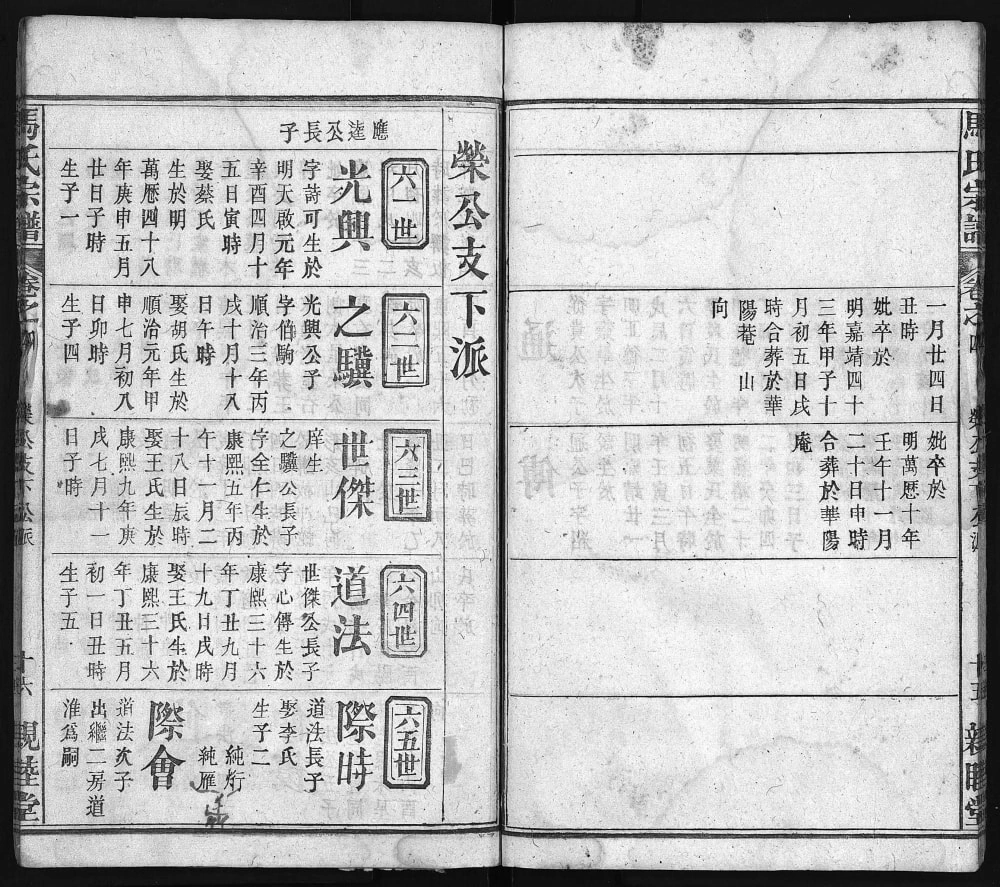 馬氏宗譜
卷之四
榮公支下松派
十五
親睦堂
一月廿四日
丑時
妣卒於
明嘉靖四十
三年甲子十
月初五日戌
時合葬於華
陽菴 山
向
妣卒於
明萬厯十年
壬午十一月
二十日申時
合葬於華陽
庵
榮公支下派
應逵公長子
六一世
光興
字蒔可生於
明天啟元年
辛酉四月十
五日寅時
娶蔡氏
生於明
萬厯四十八
年庚申五月
廿日子時
生子一
六二世
之驥
光興公子
字伯駒生於
順治三年丙
戌十月十八
日午時
娶胡氏生於
順治元年甲
申七月初八
日卯時
生子四
六三世
世傑
庠生
之驥公長子
字全仁生於
康熙五年丙
午十一月二
十八日辰時
娶王氏生於
康熙九年庚
戌七月十一
日子時
六四世
道法
世傑公長子
字心傳生於
康熙三十六
年丁丑九月
十九日戌時
娶王氏生於
康熙三十六
年丁丑五月
初一日丑時
生子五
六五世
際時
道法長子
娶李氏
生子二
純行
純雁
際會
道法次子
出繼二房道
淮爲嗣
馬氏宗譜
卷之四
榮公支下松派
十六
親睦堂